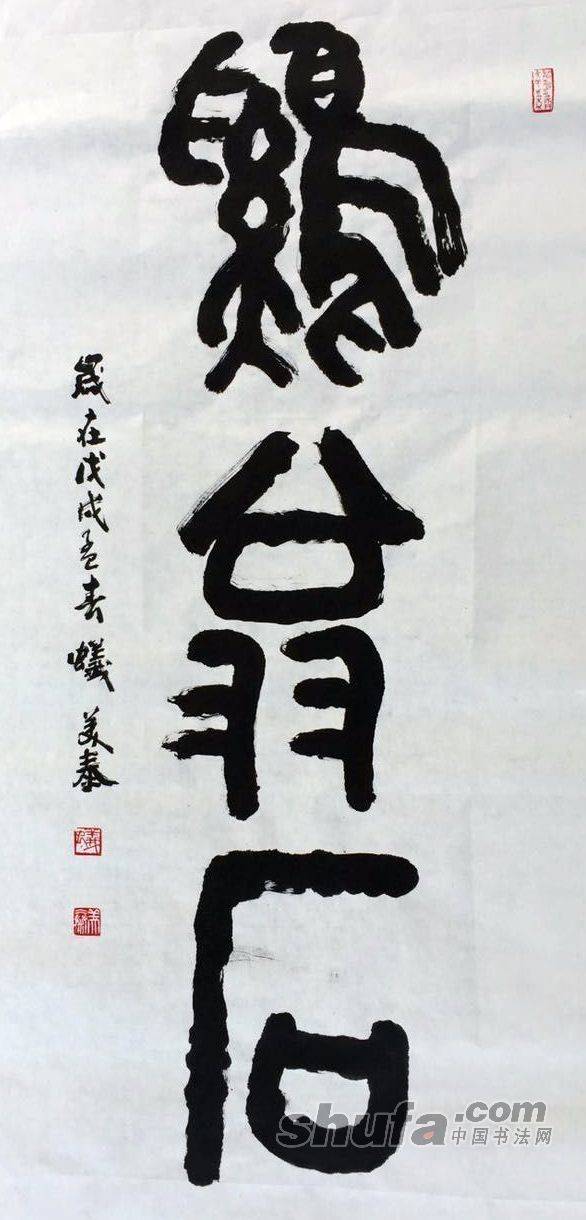 鷄翁石
歲在戊戌孟春 蟻美泰
shufa.com
中国书法网